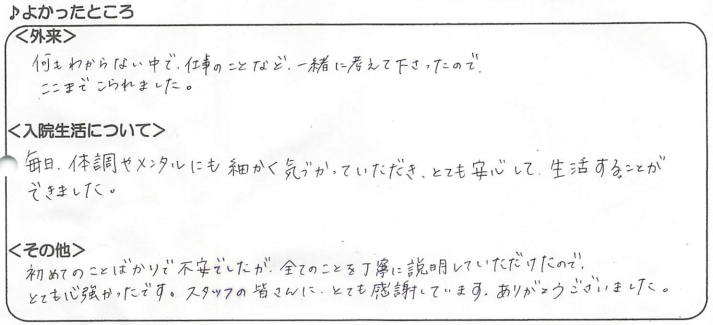 ♪よかったところ
＜外来＞
何もわからない中で、仕事のことなど、一緒に考えて下さったので、
ここまでこられました。
＜入院生活について＞
毎日、体調やメンタルにも細かく気づかっていただき、とても安心して、生活することが
できました。
＜その他＞
初めてのことばかりで不安でしたが、全てのことを丁寧に説明していただけたので、
とても心強かったです。スタッフの皆さんに、とても感謝しています。ありがとうございました。